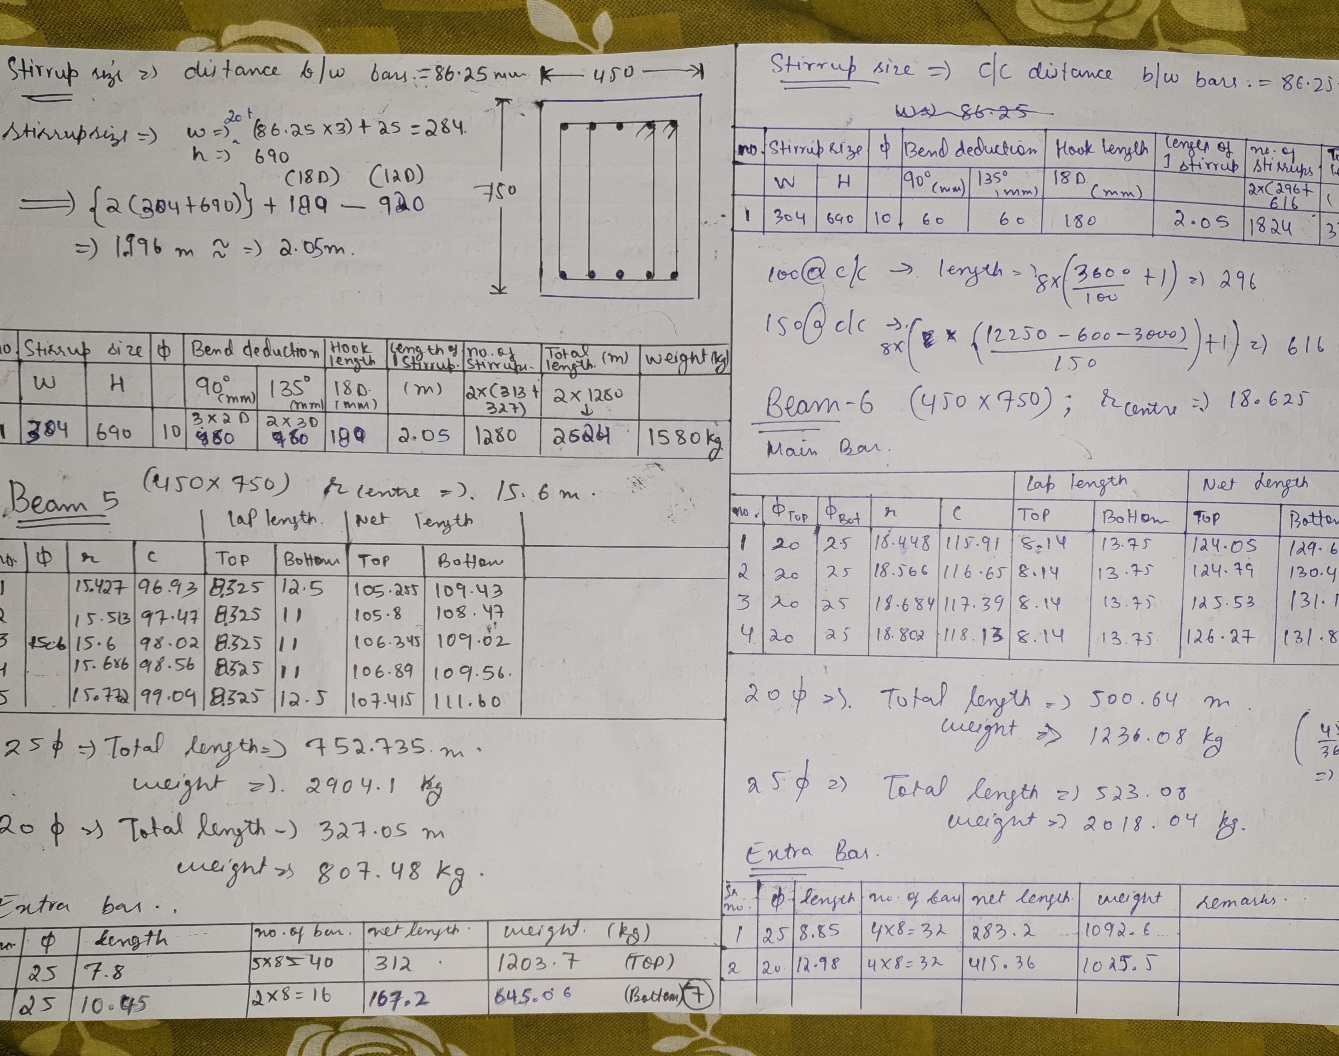 Stirrup size => distance b/w bars. = 86.25 mm
450
750
Stirrup size => w => 20+ (86.25 x3) + 25 = 284.
h => 690
(18D) (12D)
=> {2(304+690)} + 180 - 920
=> 1.996 m ≈ => 2.05m.
no. Stirrup size ϕ Bend deduction Hook length length of 1 stirrup. no. of stirrups. Total length. (m) weight (kg)
W H 90° (mm) 135° (mm) 18D. (mm) (m) 2x(313+327) 2x1280 ↓
1 304 690 10 3x2D 60 2x3D 60 180 2.05 1280 2624 1580 kg
Beam 5 (450x750) r centre =>. 15.6 m.
lap length. Net length
no. ϕ r c TOP Bottom TOP Bottom
1 15.427 96.93 8.325 12.5 105.255 109.43
2 15.513 97.47 8.325 11 105.8 108.47
3 15.6 98.02 8.325 11 106.345 109.02
4 15.686 98.56 8.325 11 106.89 109.56.
5 15.772 99.09 8.325 12.5 107.415 111.60
25 ϕ => Total length => 752.735. m.
weight =>. 2904.1 kg
20 ϕ => Total length -> 327.05 m
weight => 807.48 kg.
Extra bar..
no. ϕ length no. of bar. net length. weight. (kg)
25 7.8 5x8=40 312. 1203.7 (TOP)
25 10.45 2x8=16 167.2 645.06 (Bottom) 7
Stirrup size => c/c distance b/w bars. = 86.25
w => 86.25
no. Stirrup size ϕ Bend deduction Hook length length of 1 stirrup no. of stirrups
W H 90° (mm) 135° (mm) 18D (mm) 2x(296+616
1 304 690 10 60 60 180 2.05 1824
100 @ c/c → length = 8x(3600/100 +1) => 296
150 @ c/c → 8x((12250 - 600 - 3000)/150)+1) => 616
Beam-6 (450x750); r centre => 18.625
Main Bar.
lap length Net length
no. ϕ Top ϕ Bot r c TOP Bottom TOP Bottom
1 20 25 18.448 115.91 8.14 13.75 124.05 129.6
2 20 25 18.566 116.65 8.14 13.75 124.79 130.4
3 20 25 18.684 117.39 8.14 13.75 125.53 131.1
4 20 25 18.802 118.13 8.14 13.75 126.27 131.8
20 ϕ =>. Total length => 500.64 m.
weight => 1236.08 kg
25 ϕ => Total length => 523.08
weight => 2018.04 kg.
Extra Bar.
Sr no. ϕ length no. of bar net length. weight remarks.
1 25 8.85 4x8=32 283.2 1092.6
2 20 12.98 4x8=32 415.36 1025.5